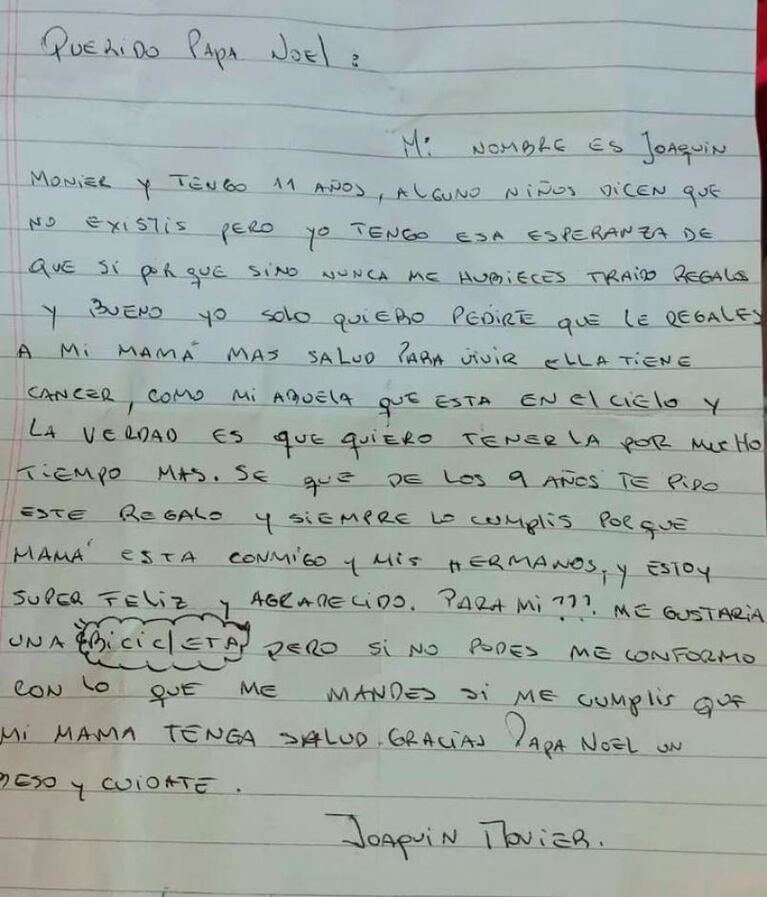 QUERIDO PAPA NOEL:
Mi NOMBRE ES JOAQUIN
MONIER Y TENGO 11 AÑOS, ALGUNO NIÑOS DICEN QUE
NO EXISTIS PERO YO TENGO ESA ESPERANZA DE
QUE SI PORQUE SINO NUNCA ME HUBIECES TRAIDO REGALOS
Y BUENO YO SOLO QUIERO PEDIRTE QUE LE REGALES
A MI MAMÁ MAS SALUD PARA VIVIR ELLA TIENE
CANCER, COMO MI ABUELA QUE ESTA EN EL CIELO Y
LA VERDAD ES QUE QUIERO TENERLA POR MUCHO
TIEMPO MAS. SE QUE DE LOS 9 AÑOS TE PIDO
ESTE REGALO Y SIEMPRE LO CUMPLIS PORQUE
MAMÁ ESTA CONMIGO Y MIS HERMANOS, Y ESTOY
SUPER FELIZ Y AGRADECIDO. PARA MI ???. ME GUSTARIA
UNA BICICLETA PERO SI NO PODES ME CONFORMO
CON LO QUE ME MANDES SI ME CUMPLIS QUE
MI MAMA TENGA SALUD. GRACIAS PAPA NOEL UN
BESO Y CUIDATE.
JOAQUIN MONIER.